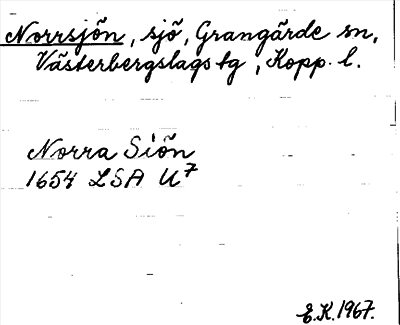 Norrsjön, sjö, Grangärde sn,
Västerbergslags tg, Kopp. l.
Norra Siön
1654 LSA U7
E.K. 1967.